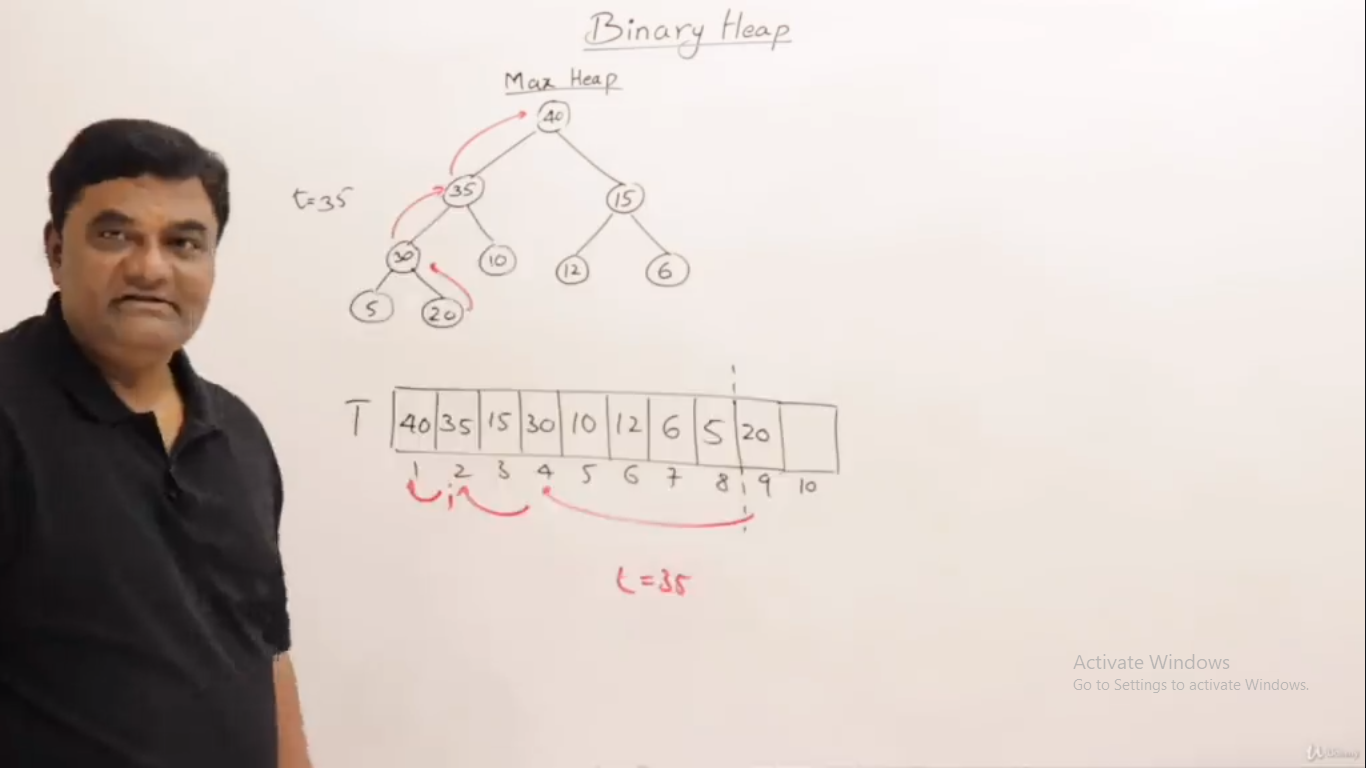 Binary Heap
Max Heap
40
t=35
35
15
30
10
12
6
5
20
T
40 35 15 30 10 12 6 5 20
1 2 3 4 5 6 7 8 9 10
i
t=35
Activate Windows
Go to Settings to activate Windows.
Udemy